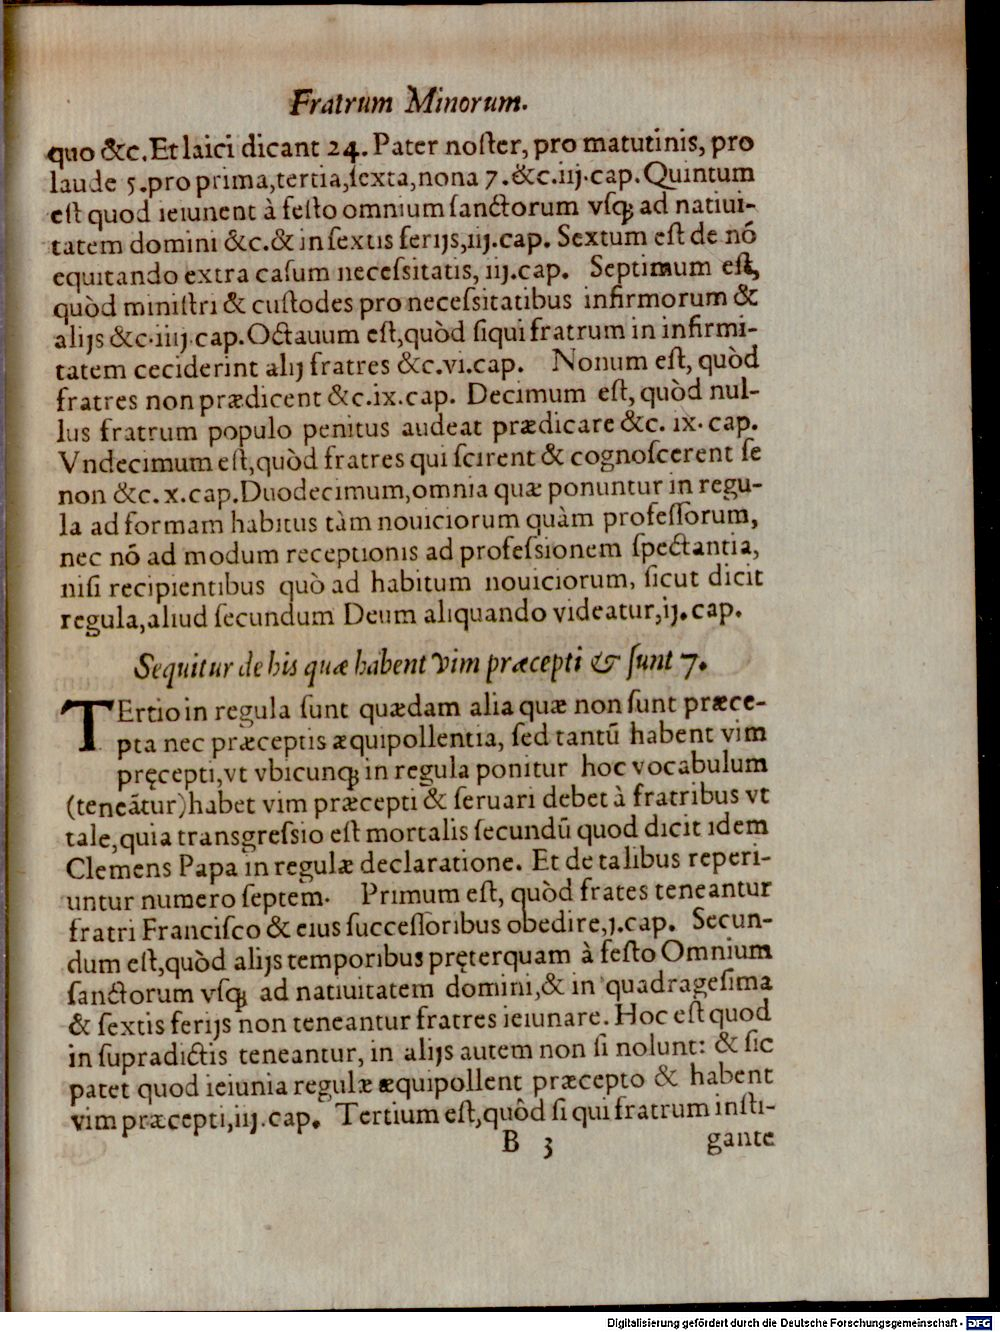 Fratrum Minorum.
quo &c. Et laici dicant 24. Pater noſter, pro matutinis, pro
laude 5. pro prima, tertia, ſexta, nona 7. &c. iij. cap. Quintum
eſt quod ieiunent à feſto omnium ſanctorum vſq; ad natiui-
tatem domini &c. & in ſextis ferijs, iij. cap. Sextum eſt de nõ
equitando extra caſum neceſsitatis, iij. cap. Septimum eſt,
quòd miniſtri & cuſtodes pro neceſsitatibus infirmorum &
alijs &c. iiij. cap. Octauum eſt, quòd ſiqui fratrum in infirmi-
tatem ceciderint alij fratres &c. vi. cap. Nonum eſt, quòd
fratres non prædicent &c. ix. cap. Decimum eſt, quòd nul-
lus fratrum populo penitus audeat prædicare &c. ix. cap.
Vndecimum eſt, quòd fratres qui ſcirent & cognoſcerent ſe
non &c. x. cap. Duodecimum, omnia quæ ponuntur in regu-
la ad formam habitus tàm nouiciorum quàm profeſſorum,
nec nõ ad modum receptionis ad profeſsionem ſpectantia,
niſi recipientibus quò ad habitum nouiciorum, ſicut dicit
regula, aliud ſecundum Deum aliquando videatur, ij. cap.
Sequitur de his quæ habent vim præcepti & ſunt 7.
TErtio in regula ſunt quædam alia quæ non ſunt præce-
pta nec præceptis æquipollentia, ſed tantũ habent vim
pręcepti, vt vbicunq; in regula ponitur hoc vocabulum
(teneãtur) habet vim præcepti & ſeruari debet à fratribus vt
tale, quia transgreſsio eſt mortalis ſecundũ quod dicit idem
Clemens Papa in regulæ declaratione. Et de talibus reperi-
untur numero ſeptem. Primum eſt, quòd frates teneantur
fratri Franciſco & eius ſucceſſoribus obedire, j. cap. Secun-
dum eſt, quòd alijs temporibus pręterquam à feſto Omnium
ſanctorum vſq; ad natiuitatem domini, & in quadrageſima
& ſextis ferijs non teneantur fratres ieiunare. Hoc eſt quod
in ſupradictis teneantur, in alijs autem non ſi nolunt: & ſic
patet quod ieiunia regulæ æquipollent præcepto & habent
vim præcepti, iij. cap. Tertium eſt, quôd ſi qui fratrum inſti-
B 3 gante
Digitalisierung gefördert durch die Deutsche Forschungsgemeinschaft - DFG